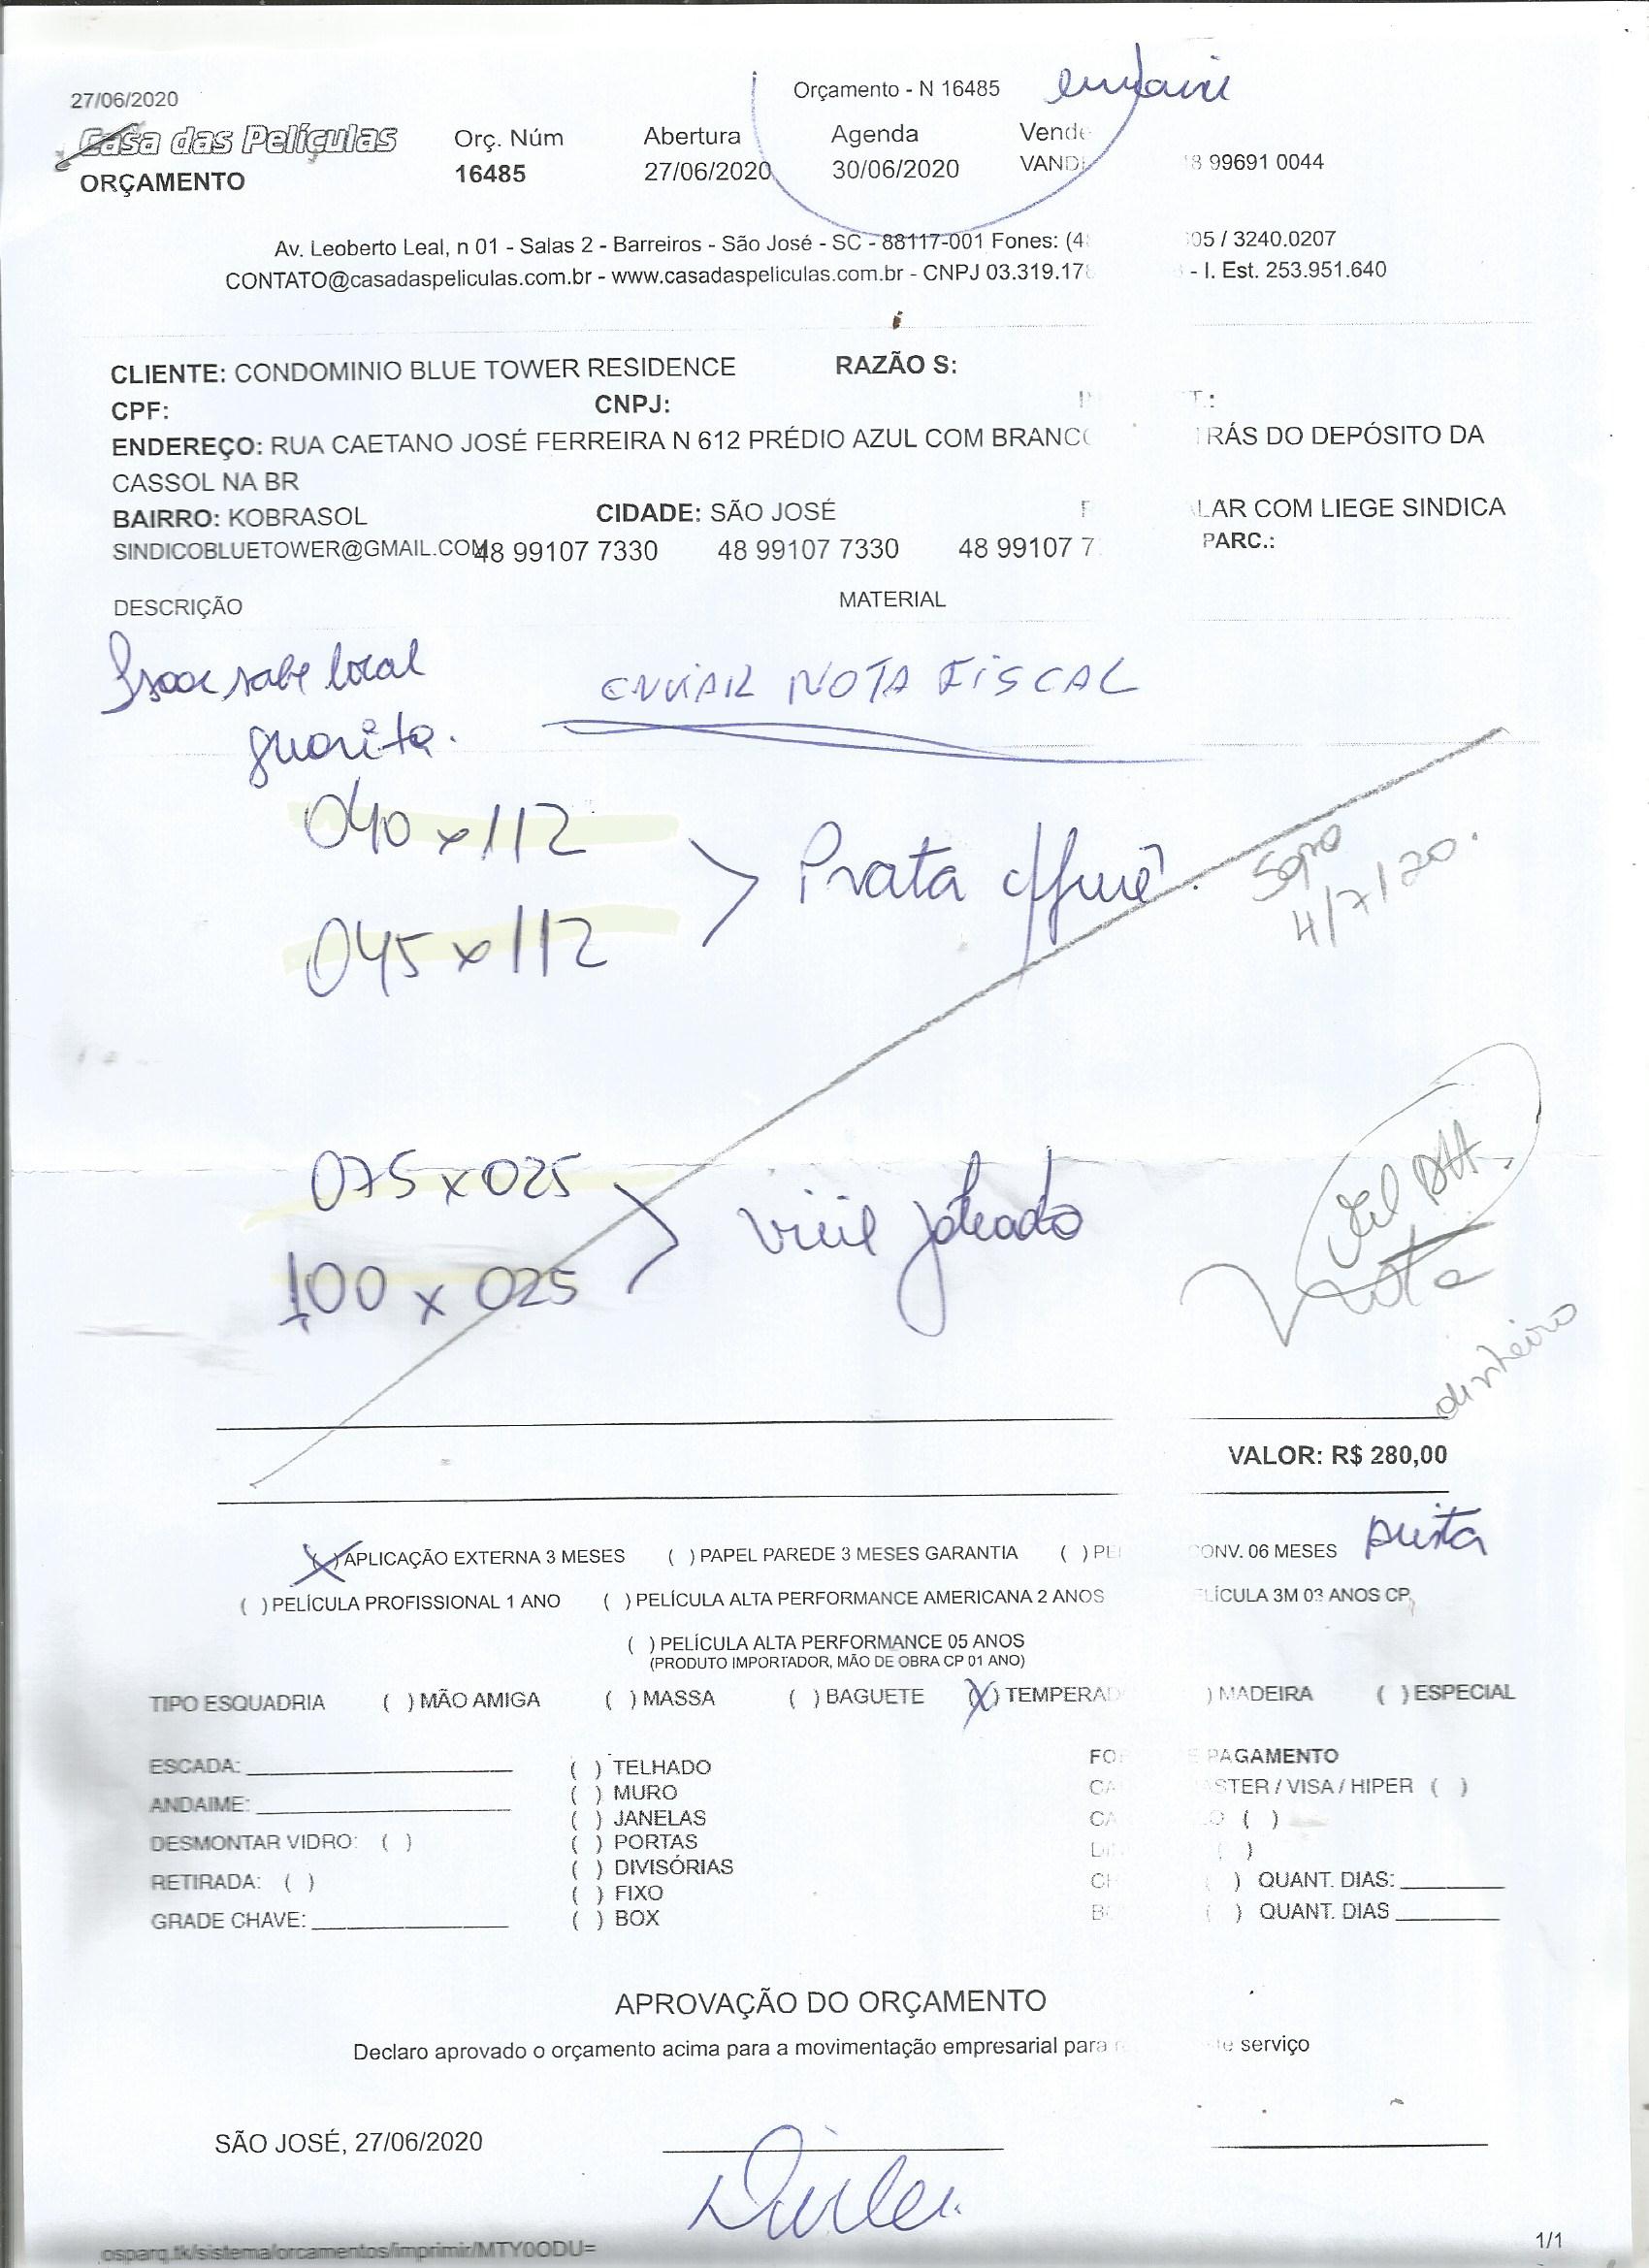 27/06/2020
Orçamento - N 16485
Casa das Películas
ORÇAMENTO
Orç. Núm
16485
Abertura
27/06/2020
Agenda
30/06/2020
Vende
VAND
8 99691 0044
Av. Leoberto Leal, n 01 - Salas 2 - Barreiros - São José - SC - 88117-001 Fones: (4 05 / 3240.0207
CONTATO@casadaspeliculas.com.br - www.casadaspeliculas.com.br - CNPJ 03.319.17 - I. Est. 253.951.640
CLIENTE: CONDOMINIO BLUE TOWER RESIDENCE RAZÃO S:
CPF: CNPJ: T.:
ENDEREÇO: RUA CAETANO JOSÉ FERREIRA N 612 PRÉDIO AZUL COM BRANC RÁS DO DEPÓSITO DA
CASSOL NA BR
BAIRRO: KOBRASOL CIDADE: SÃO JOSÉ LAR COM LIEGE SINDICA
SINDICOBLUETOWER@GMAIL.COM 48 99107 7330 48 99107 7330 48 99107 7 PARC.:
DESCRIÇÃO MATERIAL
sabe local
guarita.
ENVIAR NOTA FISCAL
040 x 112
045 x 112
Prata
4/7/20.
075 x 025
100 x 025
jateado
Nota
dinheiro
VALOR: R$ 280,00
( ) APLICAÇÃO EXTERNA 3 MESES ( ) PAPEL PAREDE 3 MESES GARANTIA ( ) PE CONV. 06 MESES
( ) PELÍCULA PROFISSIONAL 1 ANO ( ) PELÍCULA ALTA PERFORMANCE AMERICANA 2 ANOS LÍCULA 3M 03 ANOS CP
( ) PELÍCULA ALTA PERFORMANCE 05 ANOS
(PRODUTO IMPORTADOR, MÃO DE OBRA CP 01 ANO)
TIPO ESQUADRIA ( ) MÃO AMIGA ( ) MASSA ( ) BAGUETE (X) TEMPERAD ) MADEIRA ( ) ESPECIAL
ESCADA:
ANDAIME:
DESMONTAR VIDRO: ( )
RETIRADA: ( )
GRADE CHAVE:
( ) TELHADO
( ) MURO
( ) JANELAS
( ) PORTAS
( ) DIVISÓRIAS
( ) FIXO
( ) BOX
FO E PAGAMENTO
CA STER / VISA / HIPER ( )
CA O ( )
( )
CH ( ) QUANT. DIAS:
B ( ) QUANT. DIAS
APROVAÇÃO DO ORÇAMENTO
Declaro aprovado o orçamento acima para a movimentação empresarial para te serviço
SÃO JOSÉ, 27/06/2020
osparq.tk/sistema/orcamentos/imprimir/MTY0ODU=
1/1